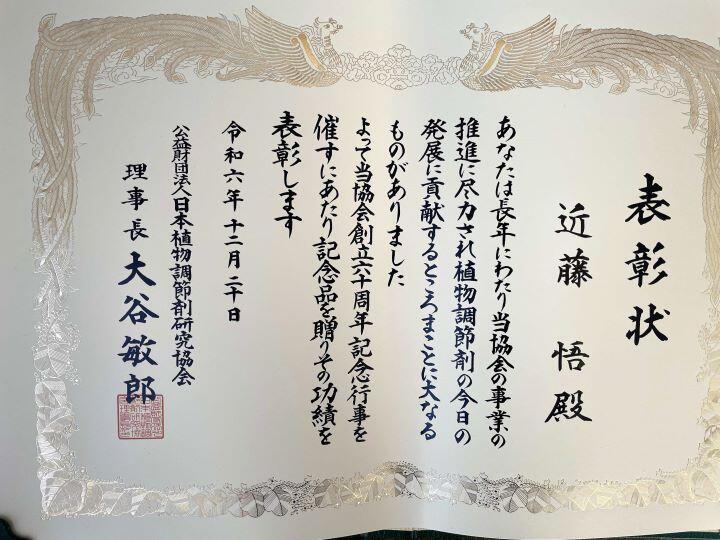 表彰状
近藤 悟 殿
あなたは長年にわたり当協会の事業の
推進に尽力され植物調節剤の今日の
発展に貢献するところまことに大なる
ものがありました
よって当協会創立六十周年記念行事を
催すにあたり記念品を贈りその功績を
表彰します
令和六年 十二月 二十日
公益財団法人日本植物調節剤研究協会
理事長 大谷敏郎